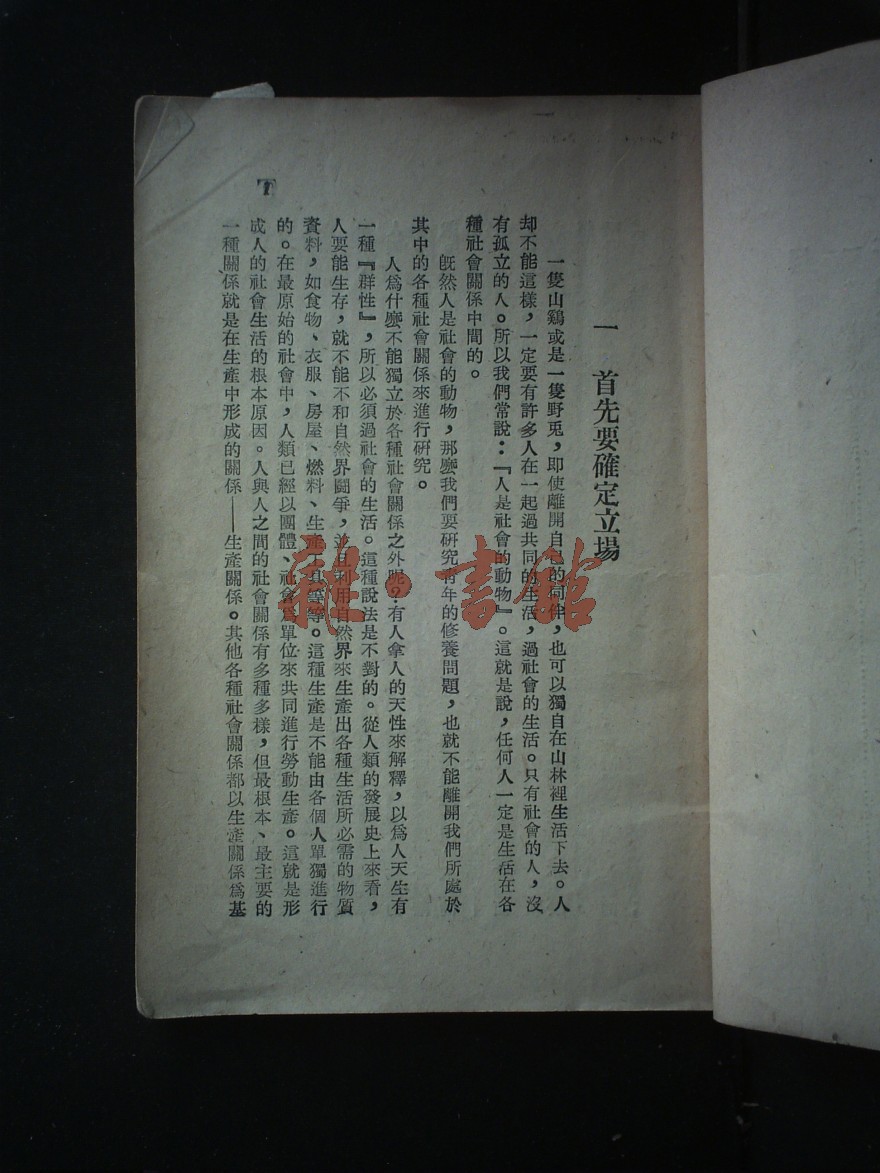 一　首先要確定立場
一隻山鷄或是一隻野兎，即使離開自己的同伴，也可以獨自在山林裡生活下去。人
却不能這樣，一定要有許多人在一起過共同的生活，過社會的生活。只有社會的人，沒
有孤立的人。所以我們常說：『人是社會的動物』。這就是說，任何人一定是生活在各
種社會關係中間的。
旣然人是社會的動物，那麽我們要研究靑年的修養問題，也就不能離開我們所處於
其中的各種社會關係來進行研究。
人爲什麽不能獨立於各種社會關係之外呢？有人拿人的天性來解釋，以爲人天生有
一種『群性』，所以必須過社會的生活。這種說法是不對的。從人類的發展史上來看，
人要能生存，就不能不和自然界鬪爭，並且利用自然界來生產出各種生活所必需的物質
資料，如食物、衣服、房屋、燃料、生產工具等等。這種生產是不能由各個人單獨進行
的。在最原始的社會中，人類已經以團體、社會爲單位來共同進行勞動生產。這就是形
成人的社會生活的根本原因。人與人之間的社會關係有多種多樣，但最根本、最主要的
一種關係就是在生產中形成的關係——生產關係。其他各種社會關係都以生產關係爲基
雜·書館